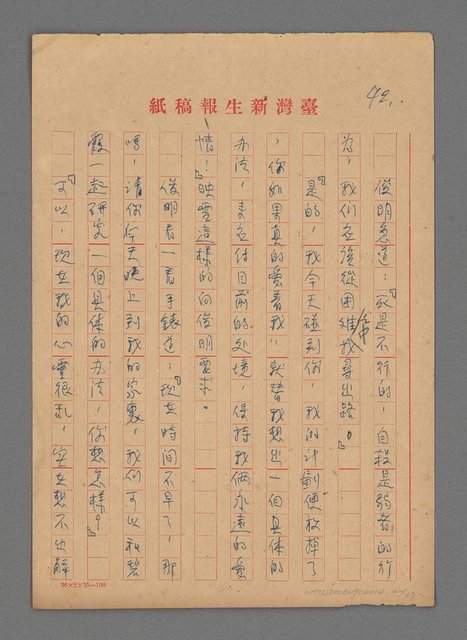 42.
臺灣新生報稿紙
俊明急道：『死是不行的，自殺是弱者的行
為，我們应該從困难中找尋出路。』
『是的，我今天碰到你，我的計劃便放棄了
，你如果真的愛着我，就替我想出一個具体的
办法，来应付目前的处境，保持我俩永遠的愛
情！』映雪這樣的向俊明要求。
俊明看一看手錶道：『現在時間不早了，那
嗎，請你今天晚上到我的家裏，我们可以和碧
霞一起研究一個具体的办法，你想怎樣？』
『可以，現在我的心靈很乱，实在想不出辦
36×2×15=100